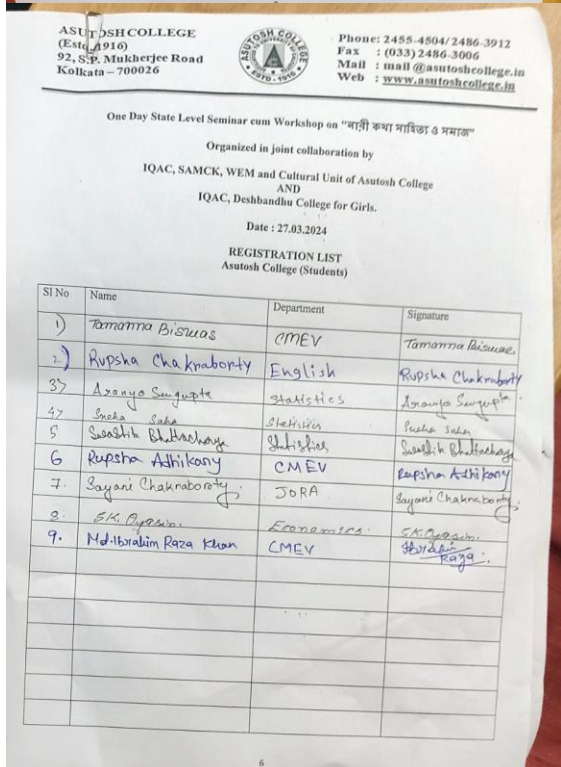 ASUTOSH COLLEGE
(Estd. 1916)
92, S.P. Mukherjee Road
Kolkata – 700026
ASUTOSH COLLEGE
ESTD - 1916
Phone: 2455-4504/ 2486-3912
Fax : (033) 2486-3006
Mail : mail@asutoshcollege.in
Web : www.asutoshcollege.in
One Day State Level Seminar cum Workshop on "নারী কথা সাহিত্য ও সমাজ"
Organized in joint collaboration by
IQAC, SAMCK, WEM and Cultural Unit of Asutosh College
AND
IQAC, Deshbandhu College for Girls.
Date : 27.03.2024
REGISTRATION LIST
Asutosh College (Students)
Sl No Name Department Signature
1) Tamanna Biswas CMEV Tamanna Biswas
2) Rupsha Chakraborty English Rupsha Chakraborty
3> Aranyo Sengupta Statistics Aranyo Sengupta
4> Sneha Saha Statistics Sneha Saha
5 Swastik Bhattacharya Statistics Swastik Bhattacharya
6 Rupsha Adhikary CMEV Rupsha Adhikary
7. Sayani Chakraboroty. JORA Sayani Chakraboroty.
8. SK. Oyasin. Economics. SK. Oyasin.
9. Md. Ibrahim Raza Khan CMEV Ibrahim Raza.
6